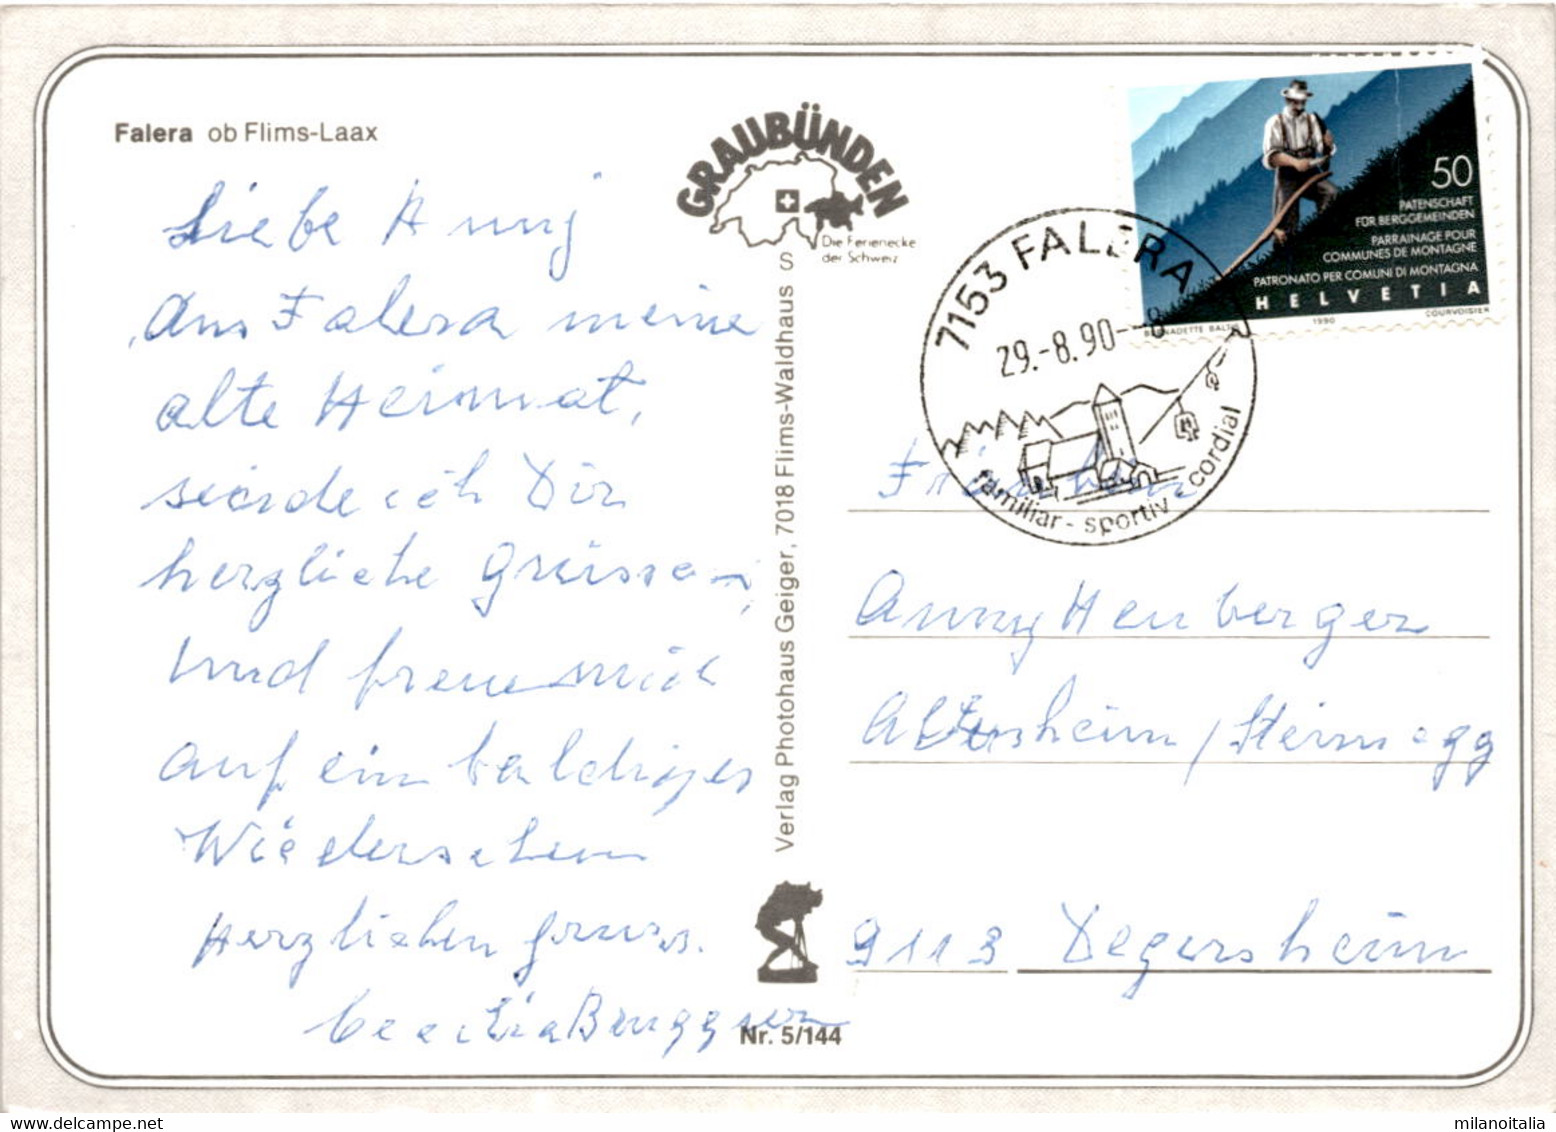 Falera ob Flims-Laax
GRAUBÜNDEN
Die Ferienecke
der Schweiz
50
PATENSCHAFT
FÜR BERGGEMEINDEN
PARRAINAGE POUR
COMMUNES DE MONTAGNE
PATRONATO PER COMUNI DI MONTAGNA
HELVETIA
BERNADETTE BALTIS 1990 COURVOISIER
7153 FALERA
29.-8.90--8
familiar - sportiv - cordial
Liebe Anny
Aus Falera meine
alte Heimat,
sende ich Dir
herzliche Grüsse,
Und freue mich
auf ein baldiges
Wiedersehen
Herzlichen Gruss.
Cecilia Bruggser
Verlag Photohaus Geiger, 7018 Flims-Waldhaus S
Nr. 5/144
Fräulein
Anny Henberger
Altersheim / Steinegg
9113 Degersheim
milanoitalia